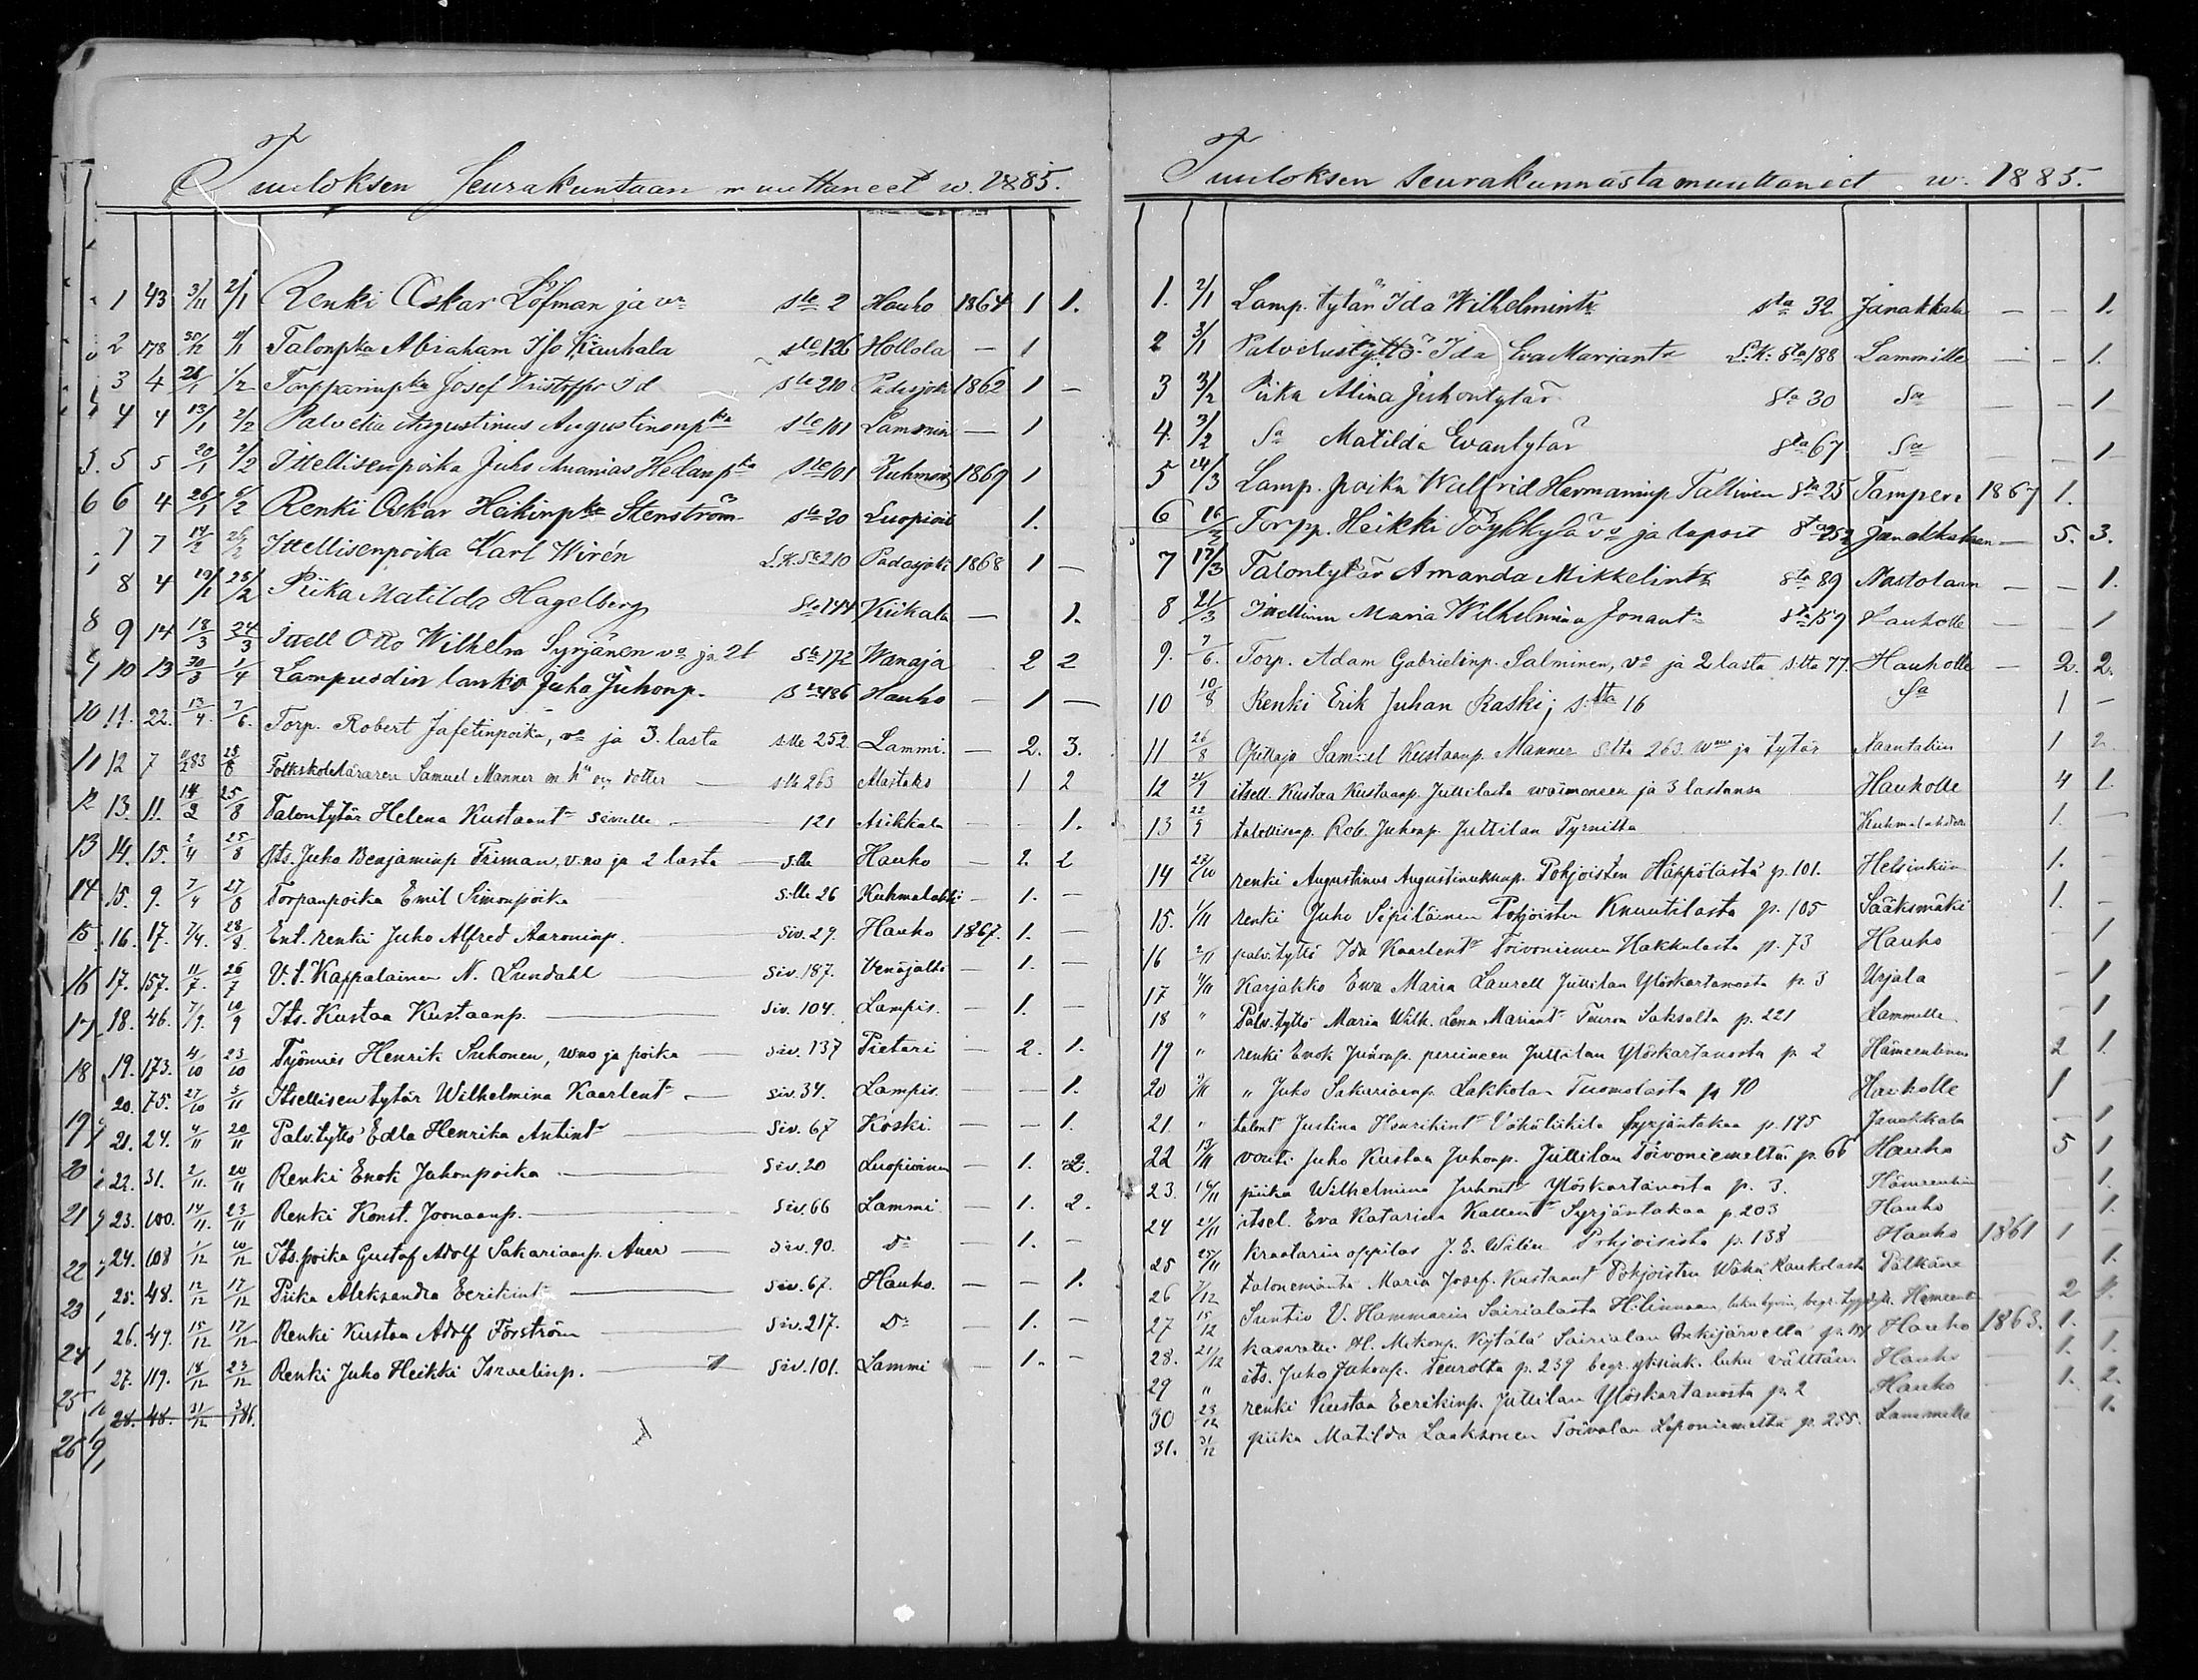 Tuuloksen Seurakuntaan muuttaneet w. 1885.
1 43 3/11 2/1 Renki Oskar Löfman ja vo slle 2 Hauho 1864 1 1.
2 178 30/12 Talonpka Abraham Kauhala slle 126 Hollola — 1
3 4 28/1 1/2 Torpparinpka Josef Kristoffer slle 210 Padasjoki 1862 1 —
4 4 13/1 2/2 Palvelia Augustinus Augustinenpka slle 101 Lammin — 1
5 5 20/1 2/2 Ittellisenpoika Juho Ananias Helanpka slle 101 Kuhmois 1869 1
6 4 26/1 6/2 Renki Oskar Heikinpka Stenström slle 20 Luopiois 1.
7 7 14/2 26/2 Ittellisenpoika Karl Wirén L.K. Sa 210 Padasjoki 1868 1 —
8 4 19/1 28/2 Piika Matilda Hagelberg Slle 144 Kiikala — 1.
9 14 18/3 24/3 Ittell Otto Wilhelm Syrjänen vo ja 2 l Slle 172 Wanaja 2 2
10 13 30/3 1/4 Lampuodin lanko Juho Juhonp. Slle 186 Hauho — 1 —
11. 22. 13/4. 7/6. Torp. Robert Jafetinpoika, vo ja 3. lasta s.lle 252 Lammi. — 2. 3.
12 7 83 28/8 Folkskoleläraren Samuel Manner m hu och dotter s.lle 263 Alastaro 1 2
13. 11. 14/2 25/8 Talontytär Helena Kustaant sivulle 121 Asikkala — - 1.
14. 15. 2/4 25/8 Its. Juho Benjaminp. Friman, v:no ja 2 lasta s.lle Hauho — 2. 2
15. 9. 7/4 27/8 Torpanpoika Emil Simonpoika s.lle 26 Kuhmalahti — 1. —
16. 17. 7/4. 28/8. Ent. renki Juho Alfred Aaroninp. Siv. 29. Hauho 1867. 1. —
17. 157. 11/7. 26/7 V.t. Kappalainen N. Lundahl Siv. 187. Venäjältä — 1. —
18. 46. 7/9. 10/9 Its. Kustaa Kustaanp. Siv. 104. Lampis. — 1. —
19. 173. 4/10 23/10 Työmies Henrik Suhonen, w:no ja poika Siv. 137 Pietari — 2. 1.
20. 75. 27/10 5/11 Itsellisen tytär Wilhelmina Kaarlent Siv. 34. Lampis. — — 1.
21. 24. 4/11 20/11 Palv.tyttö Edla Henrika Antint Siv. 67 Koski — — 1.
22. 31. 2/11. 20/11 Renki Enok Jahonpoika Siv. 20 Luopioinen — 1. 2.
23. 100. 14/11. 23/11 Renki Konst. Joonaanp. Siv. 66 Lammi — 1. 2.
24. 108 1/12 10/12 Its. poika Gustaf Adolf Sakariaanp. Auer Siv. 90. Do — 1. —
25. 48. 12/12 17/12 Piika Aleksandra Eerikint Siv. 67. Hauho. — — 1.
26. 49. 15/12 17/12 Renki Kustaa Adolf Forström Siv. 217. Do — 1. —
27. 119. 18/12 23/12 Renki Juho Heikki Israelinp. Siv. 101. Lammi — 1. —
28. 48. 31/12 3/1 86.
Tuuloksen seurakunnasta muuttaneet w. 1885.
1. 2/1 Lamp. tytär Ida Wilhelmintr sta 32 Janakkala — — 1.
2 3/1 Palvelustyttö Ida Eva Mariantr L.K. Sta 188 Lammille — — 1.
3 3/2 Piika Alina Juhontytär Sta 30 Sa — — 1
4. 3/2 Sa Matilda Evantytär Sta 67 Sa — — 1
5 14/3 Lamp. poika Walfrid Hermaninp Tallinen Sta 25 Tampere 1867 1.
6 16/3 Torpp. Heikki Pöykkylä vo ja lapset Sta 252 Janakkalaan — 5. 3.
7 17/3 Talontytär Amanda Mikkelintr Sta 89 Nastolaan — — 1.
8 21/3 Itsellinen Maria Wilhelmiina Jonant Sta 159 Hauholle — — 1
9. 7/6. Torp. Adam Gabrielinp. Salminen, vo ja 2 lasta s.lta 77. Hauholle — 2. 2.
10 10/8 Renki Erik Juhan Raski; s.lta 16 Sa 1 —
11 26/8 Opettaja Samuel Kustaanp. Manner Slta 263 wmo ja tytär Naantaliin 1 2
12 21/9 itsell. Kustaa Kustaanp. Juttilasta waimoneen ja 3 lastansa Hauholle 4 1.
13 22/9 talollisenp. Rob. Juhonp. Juttilan Tyrnilta Kuhmalahdelle 1. —
14 22/10 renki Augustinus Augustinuksenp. Pohjoisten Häppölästä p. 101. Helsinkiin 1. —
15. 1/11 renki Juho Sipiläinen Pohjoisten Knuutilasta p. 105 Sääksmäki 1. —
16 2/11 palv. tyttö Ida Kaarlent Toivoniemen Hakkalasta p. 73 Hauho — 1
17 4/11 Karjakko Ewa Maria Laurell Juttilan Ylöskartanosta p. 3 Urjala — 1
18 " Palv.tyttö Maria Wilh. Lena Mariant Teuron Saksalta p. 221 Lammelle — 1
19 " renki Enok Juhonp. pereineen Juttilan Ylöskartanosta p. 2 Hämeenlinna 2 1.
20 9/11 " Juho Sakariaanp. Lakkolan Tuomolasta p. 90 Hauholle 1 —
21. " talont Justina Henrikint Wähäliikilä Syrjäntakaa p. 195 Janakkala — 1
22 13/11 vouti Juho Kustaa Juhonp. Juttilan Toivoniemeltä p. 66 Hauho 5 1
23. 16/11 piika Wilhelmina Juhontr Ylöskartanosta p. 3. Hämeenlin — 1.
24 21/11 itsel. Eva Katarina Kallentr Syrjäntakaa p. 203 Hauho — 1.
25 25/11 kraatarin oppilas J. E. Wilén Pohjoisista p. 138 Hauho 1861 1 —
26 7/12 talonemäntä Maria Josef. Kustaant Pohjoisten Wähä Raukolasta Pälkäne 1.
27 15/12 Suntio V. Hammarin Sairialasta H:linnaan, Hämeenl 2 1.
28. 21/12 kasvatti H. Mikonp. Kytälä Sairialan Onkijärvellä Hauho 1863. 1. —
29 " its. Juho Jakonp. Teurolta p. 239 begr. yksink. luku välttäv. Hauho 1. 1.
30 23/12 renki Kustaa Eerikinp. Juttilan Ylöskartanosta p. 2 Hauho — 1. 2.
31. 31/12 piika Matilda Laaksonen Toivolan Leponiemeltä p. 255. Lammille — — 1.